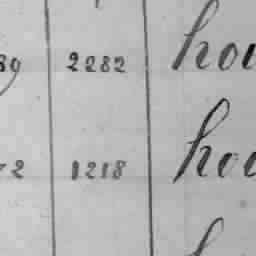 89 2282 hou
72 1218 hou